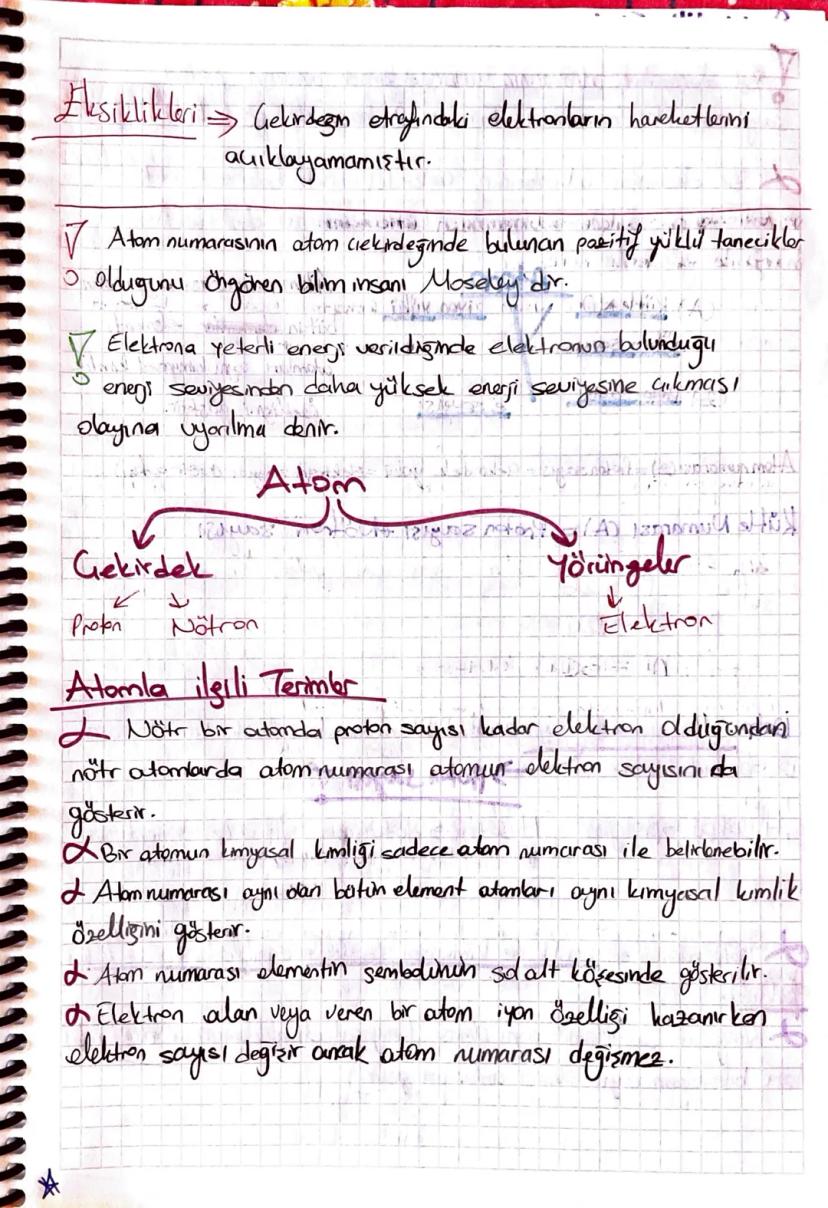 Eksiklikleri ⇒ Çekirdeğin etrafındaki elektronların hareketlerini
açıklayamamıştır.
Atom numarasının atom çekirdeğinde bulunan pozitif yüklü tanecikler
olduğunu öngören bilim insanı Moseley'dir.
Elektrona yeterli enerji verildiğinde elektronun bulunduğu
enerji seviyesinden daha yüksek enerji seviyesine çıkması
olayına uyarılma denir.
Atom
Çekirdek Yörüngeler
Proton Nötron Elektron
Atomla ilgili Terimler
Nötr bir atomda proton sayısı kadar elektron olduğundan
nötr atomlarda atom numarası atomun elektron sayısını da
gösterir.
Bir atomun kimyasal kimliği sadece atom numarası ile belirlenebilir.
Atom numarası aynı olan bütün element atomları aynı kimyasal kimlik
özelliğini gösterir.
Atom numarası elementin sembolünün sol alt köşesinde gösterilir.
Elektron alan veya veren bir atom iyon özelliği kazanırken
elektron sayısı değişir ancak atom numarası değişmez.